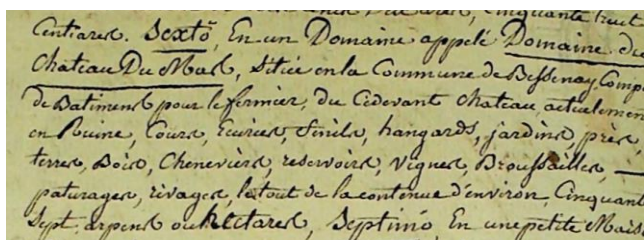 cinquante huit
Centiares. Sextò, En un Domaine appelé Domaine du
Chateau Du Mas, Sitiée en la Commune de Bessenay, Comp
de Batimens pour le fermier, du Cidevant Chateau actuelemen
en Ruine, Cours, Ecuries, fenils, hangards, jardins, près,
terres, Bois, Cheneviers, reservoirs, vignes, Broussailles,
paturages, rivages, le tout de la contenue d'environ, Cinquant
Sept arpens ou hectares, Septimò En une petite Mais